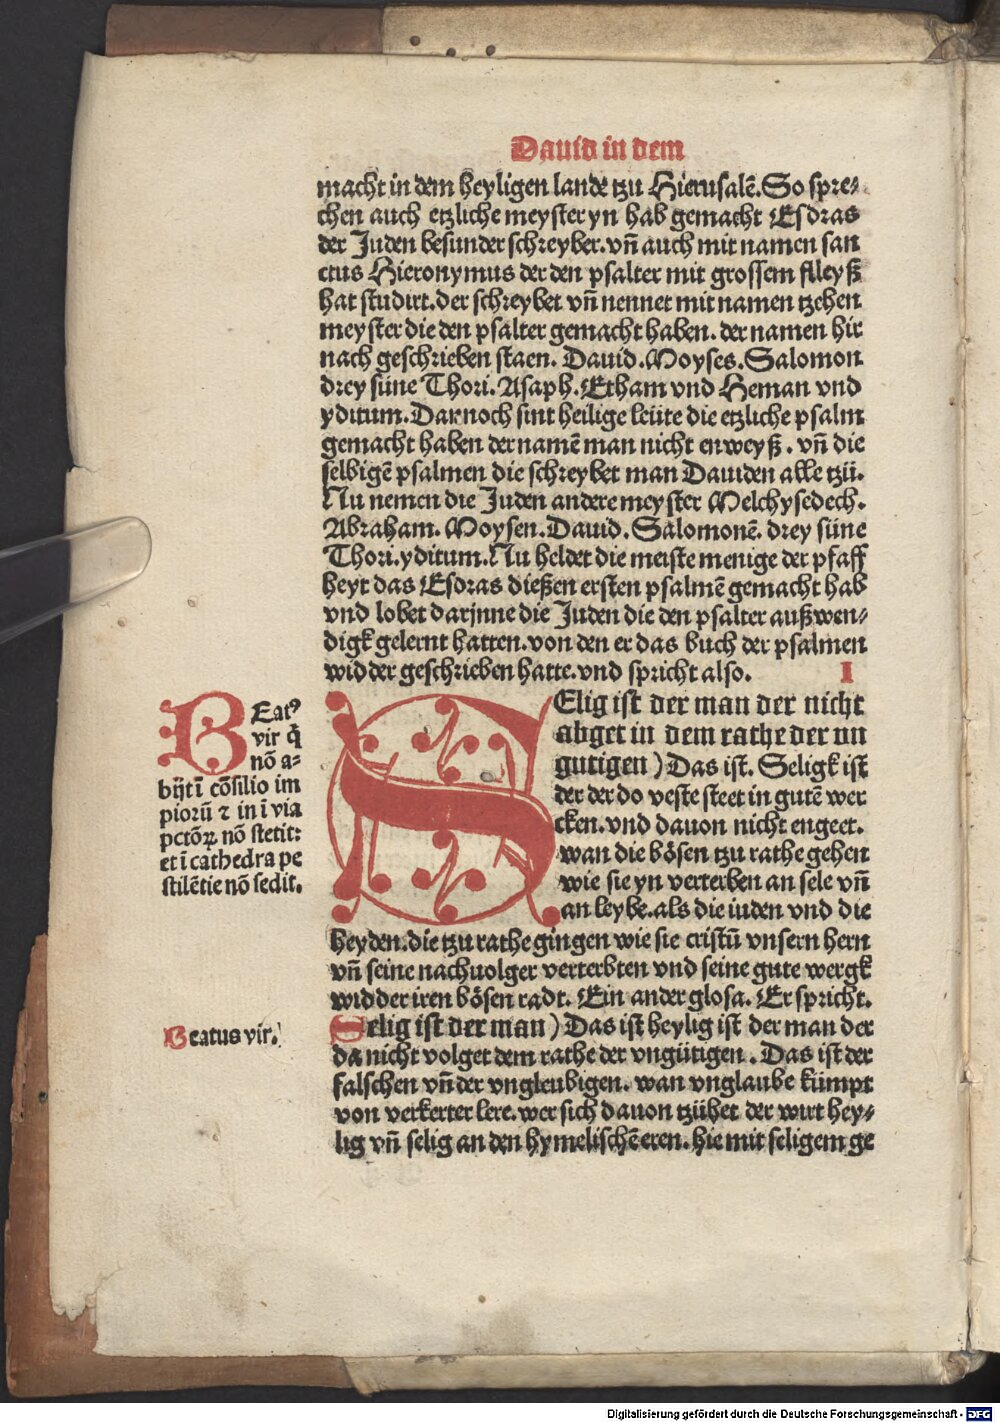 Dauid in dem
macht in dem heyligen lande tzu Hierusalē. So spre⸗
chen auch etzliche meyster yn hab gemacht Esdras
der Juden besunder schreyber. vn̄ auch mit namen san
ctus Hieronymus der den psalter mit grossem fleyß
hat studirt. der schreybet vn̄ nennet mit namen tzehen
meyster die den psalter gemacht haben. der namen hir
nach geschrieben staen. Dauid. Moyses. Salomon
drey süne Thori. Asaph. Etham vnd Heman vnd
yditum. Darnoch sint heilige leüte die etzliche psalm
gemacht haben der namē man nicht enweyß. vn̄ die
selbigē psalmen die schreybet man Dauiden alle tzü.
Nu nemen die Juden andere meyster Melchysedech.
Abraham. Moysen. Dauid. Salomonē. drey süne
Thori. yditum. Nu heldet die meiste menige der pfaff
heyt das Esdras dießen ersten psalmē gemacht hab
vnd lobet darjnne die Juden die den psalter außwen⸗
digk gelernt hatten. von den er das buch der psalmen
widder geschrieben hatte. vnd spricht also. I
BEatꝰ
vir q̄
nō a⸗
bijt ī cōsilio im
piorū ⁊ in ī via
pctōꝝ nō stetit:
et ī cathedra pe
stilētie nō sedit.
SElig ist der man der nicht
abget in dem rathe der vn
gutigen) Das ist. Seligk ist
der der do veste steet in gutē wer
cken. vnd dauon nicht engeet.
wan die bösen tzu rathe gehen
wie sie yn verterben an sele vn̄
an leybe. als die iuden vnd die
heyden. die tzu rathe gingen wie sie cristū vnsern hern
vn̄ seine nachuolger verterbten vnd seine gute wergk
widder iren bösen radt. Ein ander glosa. Er spricht.
Beatus vir.
Selig ist der man) Das ist heylig ist der man der
da nicht volget dem rathe der vngütigen. Das ist der
falschen vn̄ der vngleubigen. wan vnglaube kümpt
von verkerter lere. wer sich dauon tzühet der wirt hey⸗
lig vn̄ selig an den hymelischē eren. hie mit seligem ge
Digitalisierung gefördert durch die Deutsche Forschungsgemeinschaft - DFG